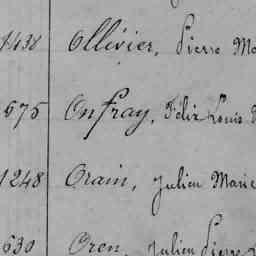 1438 Ollivier, Pierre Ma
675 Onfray, Félix Louis
1248 Orain, Julien Marie
630 Oren, Julien Pierre